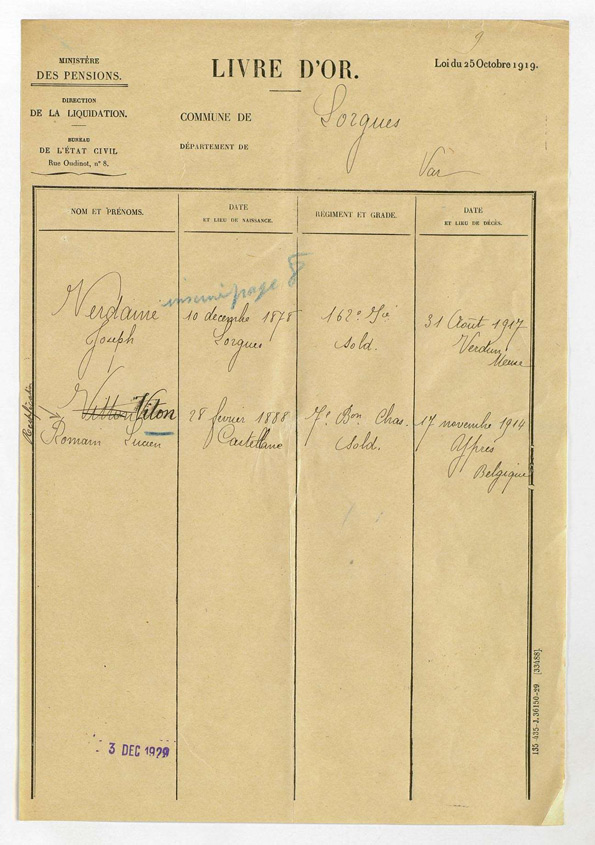 9
MINISTÈRE
DES PENSIONS.
DIRECTION
DE LA LIQUIDATION.
BUREAU
DE L'ÉTAT CIVIL
Rue Oudinot, n° 8.
LIVRE D'OR.
Loi du 25 Octobre 1919.
COMMUNE DE Sorgues
DÉPARTEMENT DE Var
NOM ET PRÉNOMS.
DATE
ET LIEU DE NAISSANCE.
RÉGIMENT ET GRADE.
DATE
ET LIEU DE DÉCÈS.
inscrit page 8
Verdaine 10 decembre 1878 162e Gié 31 Août 1917
Joseph Sorgues sold. Verdun
Meuse
Vitton Viton 28 fevrier 1888 7e Bon. Chas. 17 novembre 1914
Romain Lucien Castellane sold. Ypres
Belgique
3 DEC 1929
135-435-J. 36150-29. [33488].